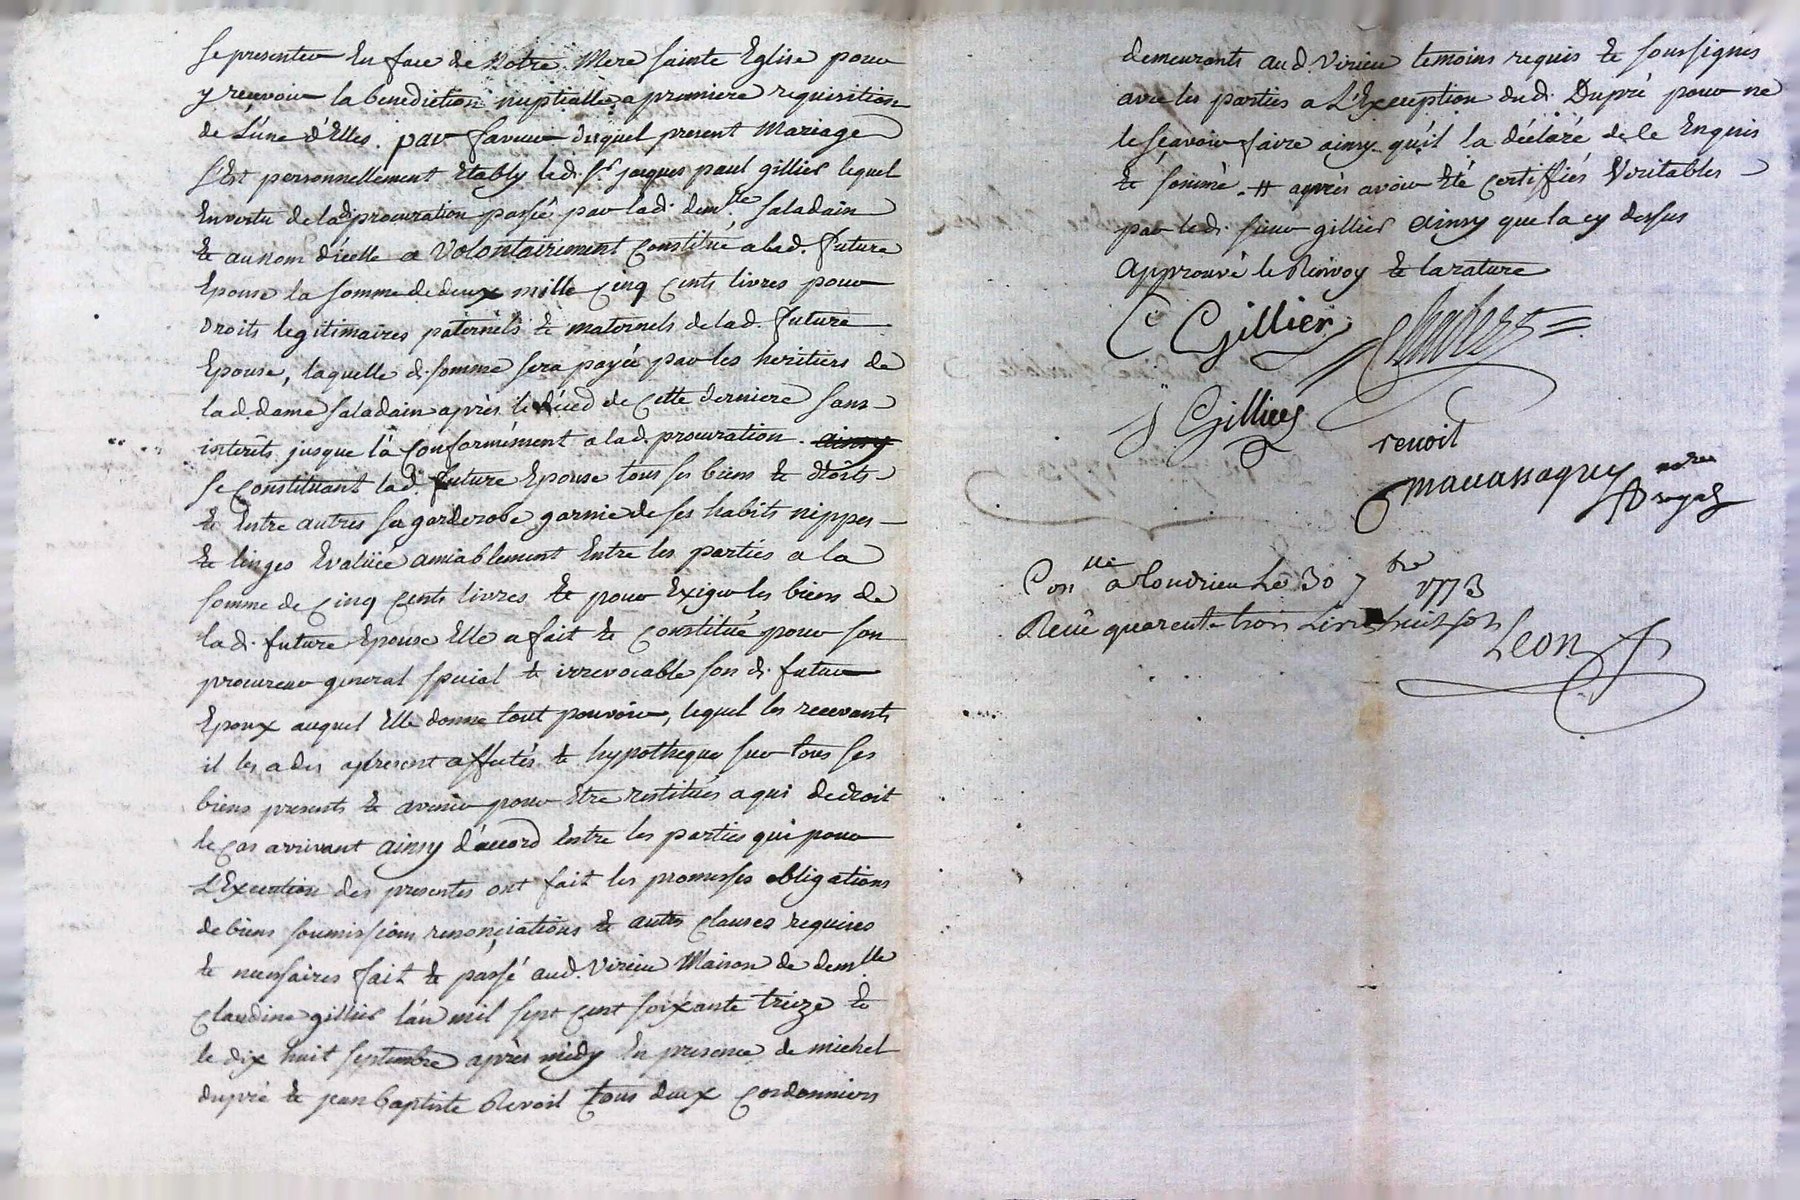 Se presenter En face de Notre Mere sainte Eglise pour
y reçevoir la benediction nuptialle a premiere requisition
de L'une d'Elles. par faveur duquel present Mariage
s'Est personnellement Etably led. Sr jacques paul gillier lequel
En vertu de lad. procuration passée par lad. demlle Saladain
Et au nom d'icelle a Volontairement Constitué a lad. future
Epouse la somme de deux mille Cinq Cents livres pour
Droits legitimaires paternels Et maternels de lad. future
Epouse, laquelle d. somme sera payée par les heritiers de
lad. dame Saladain après le déced de Cette derniere sans
interêts jusque là Conformément a lad. procuration. ainsy
Se Constituant lad. future Epouse tous ses biens Et droits
Et Entre autres sa garderobe garnie de ses habits nippes
Et linges Evalüée amiablement Entre les parties a la
somme de Cinq Cents livres Et pour Exiger les biens de
lad. future Epouse Elle a fait Et Constitué pour son
procureur general special Et irrevocable son d. futur
Epoux auquel Elle donne tout pouvoir, lequel les recevants
il les a des apresent affectés Et hypothequés sur tous ses
biens presents Et avenir pour Etre restitués a qui de droit
le Cas arrivant ainsy d'accord Entre les parties qui pour
L'Execution des presentes ont fait les promesses obligations
de biens soumissions renonçiations Et autres Clauses requises
Et necessaires fait Et passé aud. Virieu Maison de demlle
Claudine gillier l'an mil sept Cent soixante treize Et
le dix huit septembre après midy En presence de michel
dupré Et jean baptiste Revoil tous deux Cordonniers
demeurants aud. Virieu temoins requis Et soussignés
avec les parties a L'Exception dud. Dupré pour ne
le sçavoir faire ainsy qu'il l'a déclaré de ce Enquis
Et sommé. # après avoir Eté Certiffiés Veritables
par led. sieur gillier ainsy que la cy dessus
approuvé le Renvoy Et la rature
C Gillier
Chabert
j Gillier
revoil
mavassaquy
Conlle a Condrieu Le 30 7bre 1773
Receu quarente trois Livres huit sols
Leon